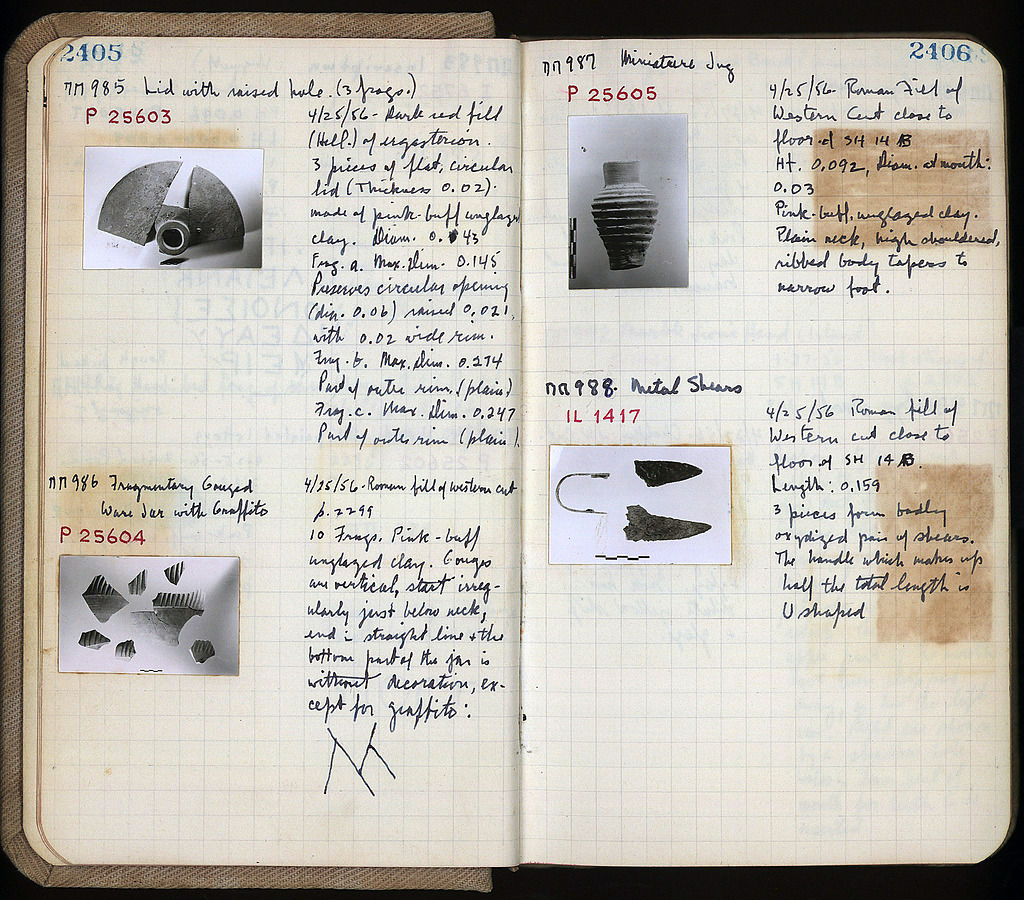 2405
ΠΠ 985 Lid with raised hole. (3 frags.)
P 25603
4/25/56 - Dark red fill
(Hell.) of ergasterion.
3 pieces of flat, circular
lid (Thickness 0.02).
made of pink-buff unglazed
clay. Diam. 0.43
Frag. a. Max. Dim. 0.145
Preserves circular opening
(dia. 0.06) raised 0.021,
with 0.02 wide rim.
Frag. b. Max. Dim. 0.274
Part of outer rim. (plain)
Frag. c. Max. Dim. 0.247
Part of outer rim (plain).
ΠΠ 986 Fragmentary Gouged
Ware Jar with Graffito
P 25604
4/25/56 - Roman fill of western cut
p. 2299
10 Frags. Pink-buff
unglazed clay. Gouges
are vertical, start irreg-
ularly just below neck,
end in straight line + the
bottom part of the jar is
without decoration, ex-
cept for graffito:
2406
ΠΠ 987 Miniature Jug
P 25605
4/25/56 - Roman Fill of
Western Cut close to
floor of SH 14 B
Ht. 0.092, Diam. at mouth:
0.03
Pink-buff, unglazed clay.
Plain neck, high shouldered,
ribbed body tapers to
narrow foot.
ΠΠ 988. Metal Shears
IL 1417
4/25/56 Roman fill of
Western cut close to
floor of SH 14 B.
Length: 0.159
3 pieces form badly
oxydized pair of shears.
The handle which makes up
half the total length is
U shaped